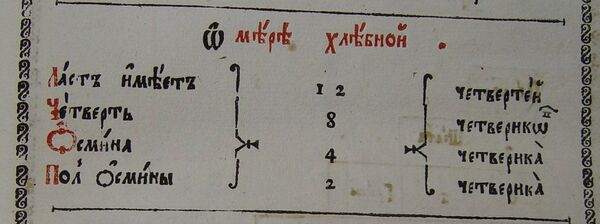 Ѿ мѣ́рѣ хлѣ́бной .
Ластъ и҆мѣетъ 12 четверте́й
Че́тверть 8 четверикѡ́въ
Ѻсмина 4 четверика̀
Пол̾ Ѻсмины 2 четверика̀